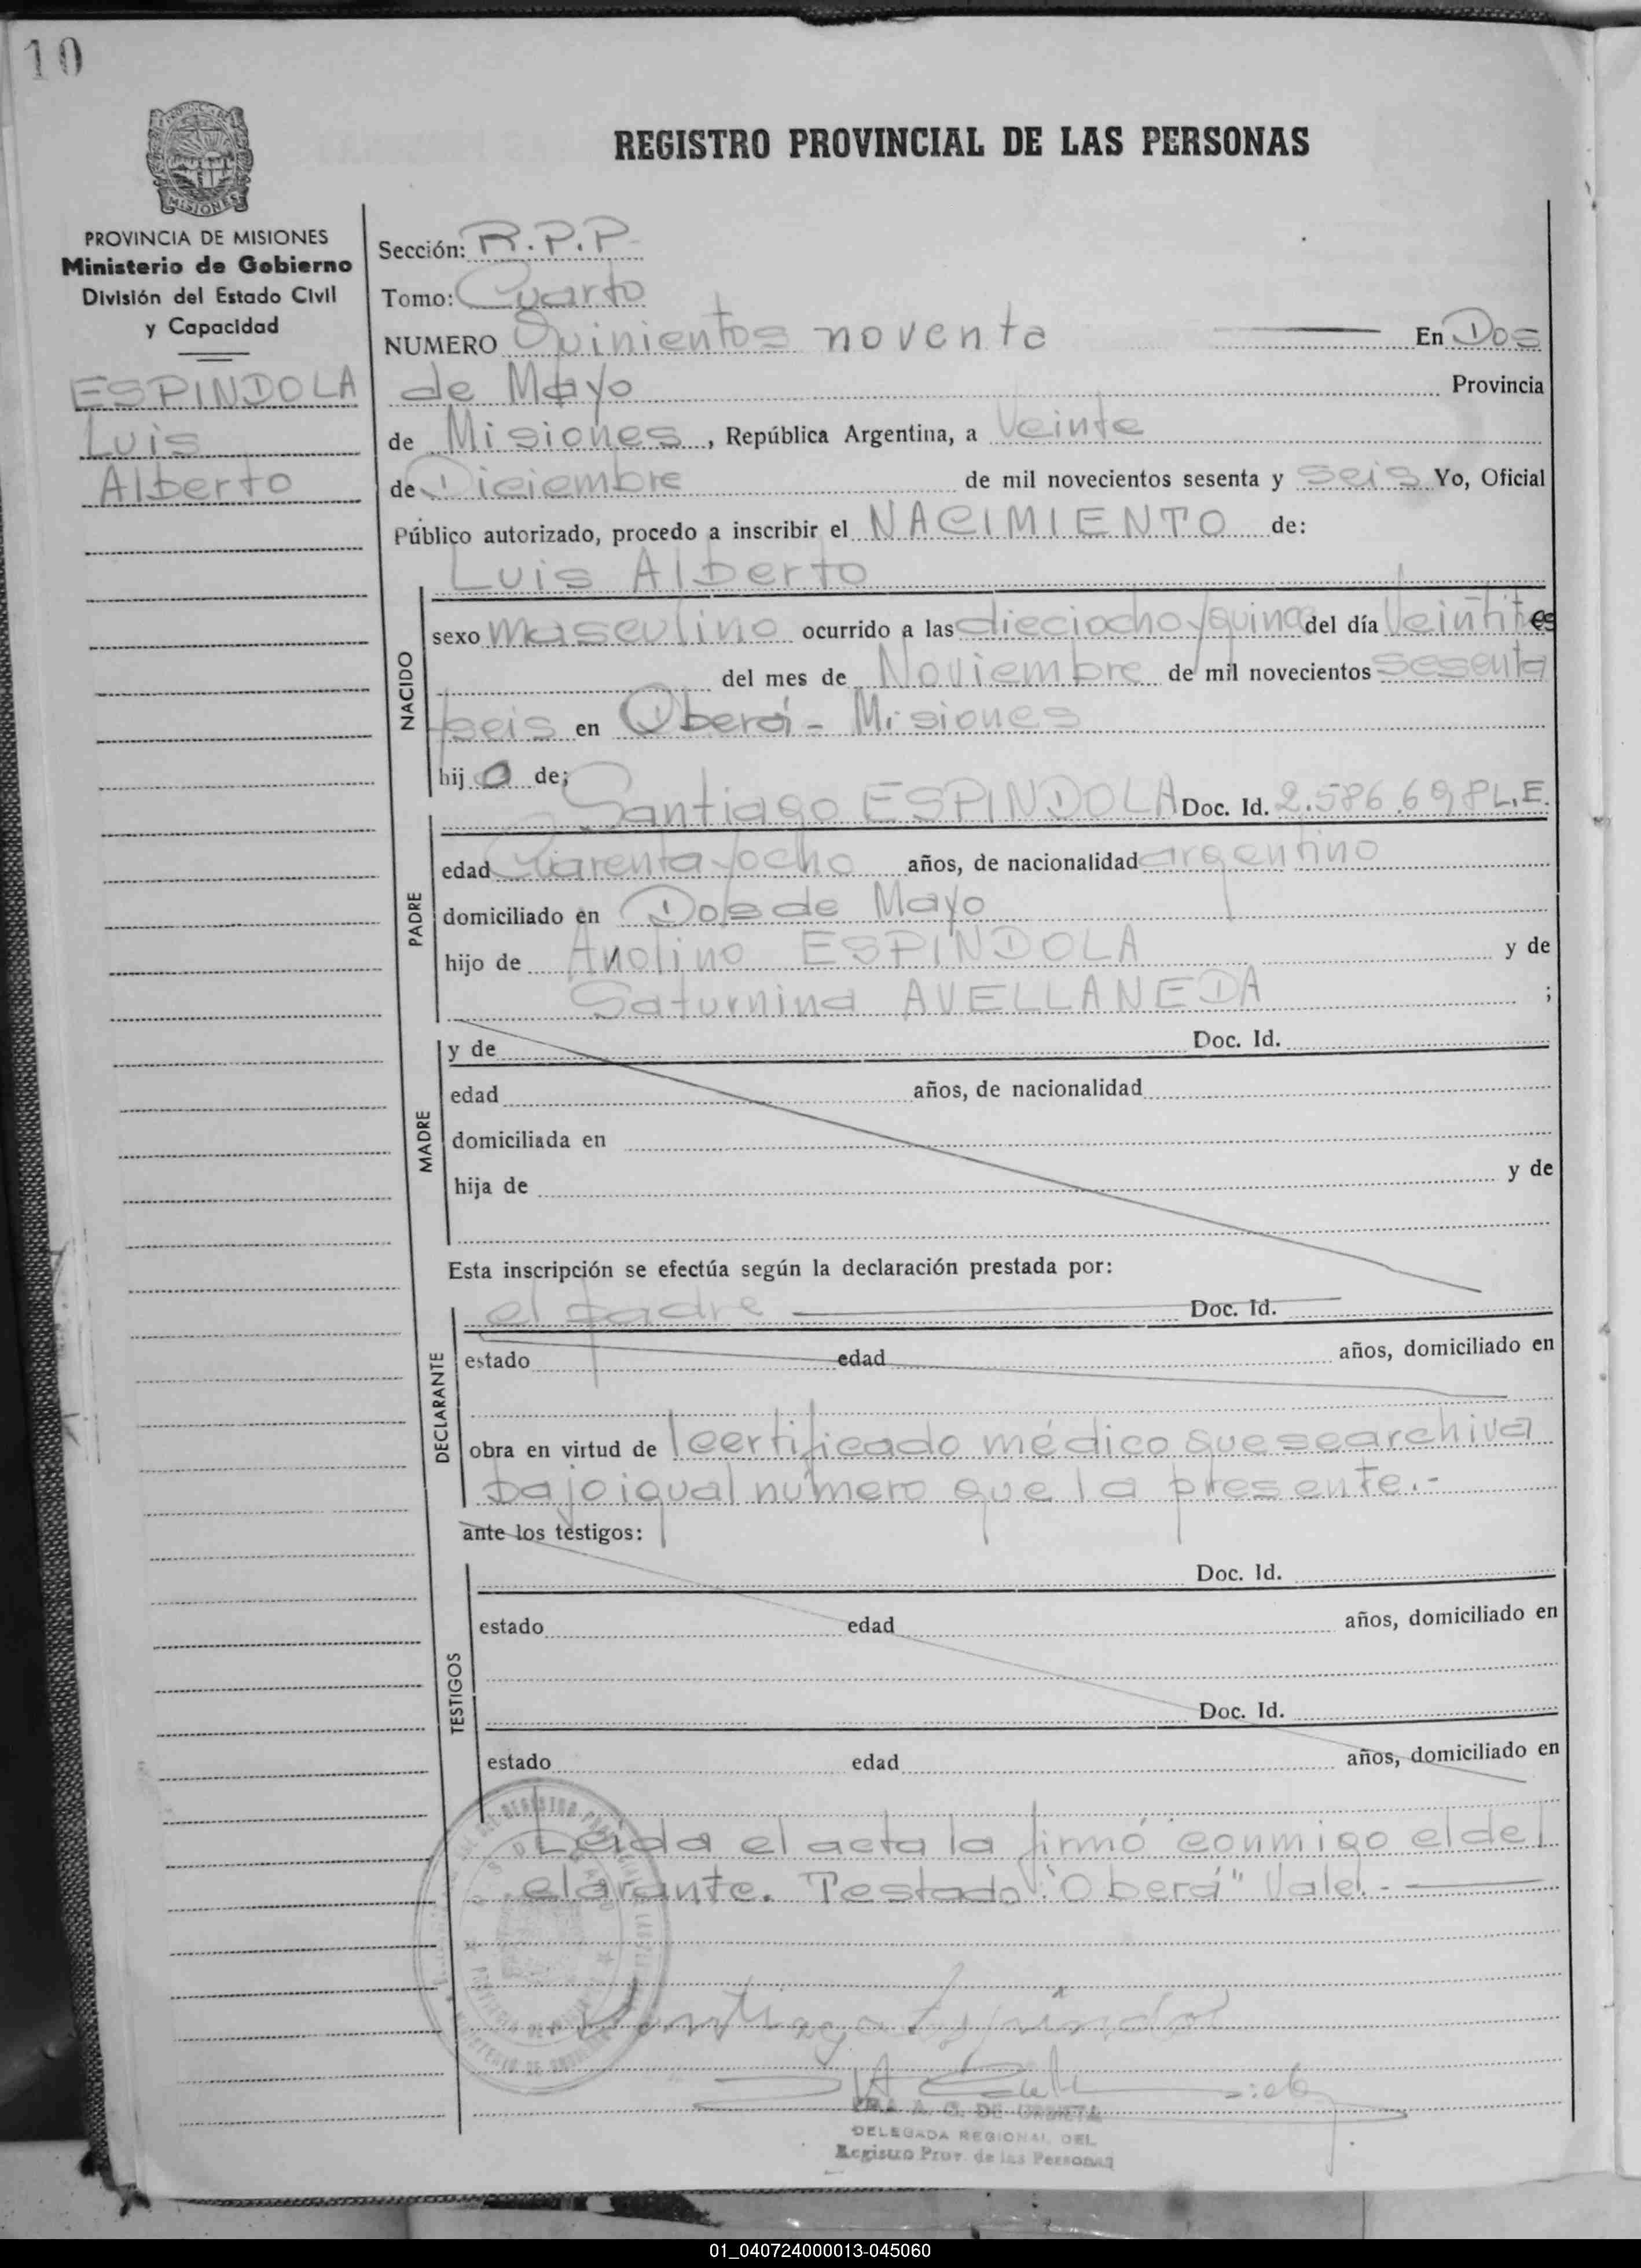 10
REGISTRO PROVINCIAL DE LAS PERSONAS
MISIONES
PROVINCIA DE MISIONES
Ministerio de Gobierno
División del Estado Civil
y Capacidad
ESPINDOLA
Luis
Alberto
Sección: R.P.P.
Tomo: Cuarto
NUMERO Quinientos noventa En Dos
de Mayo Provincia
de Misiones, República Argentina, a Veinte
de Diciembre de mil novecientos sesenta y seis Yo, Oficial
Público autorizado, procedo a inscribir el NACIMIENTO de:
Luis Alberto
NACIDO
sexo masculino ocurrido a las dieciocho y quince del día Veintitres
del mes de Noviembre de mil novecientos sesenta
y seis en Oberá - Misiones
hijo de;
Santiago ESPINDOLA Doc. Id. 2.586.698 L.E.
PADRE
edad Cuarenta y ocho años, de nacionalidad argentino
domiciliado en Dos de Mayo
hijo de ESPINDOLA y de
Saturnina AVELLANEDA ;
MADRE
y de Doc. Id.
edad años, de nacionalidad
domiciliada en
hija de y de
Esta inscripción se efectúa según la declaración prestada por:
el padre Doc. Id.
DECLARANTE
estado edad años, domiciliado en
obra en virtud de l certificado médico que se archiva
bajo igual número que la presente.-
ante los testigos:
TESTIGOS
Doc. Id.
estado edad años, domiciliado en
Doc. Id.
estado edad años, domiciliado en
Leida el acta la firmó conmigo el de
clarante. Testado: "Oberá" Vale.-
Santiago Espindola
A. G. DE URBIETA
DELEGADA REGIONAL DEL
Registro Prov. de las Personas
01_040724000013-045060